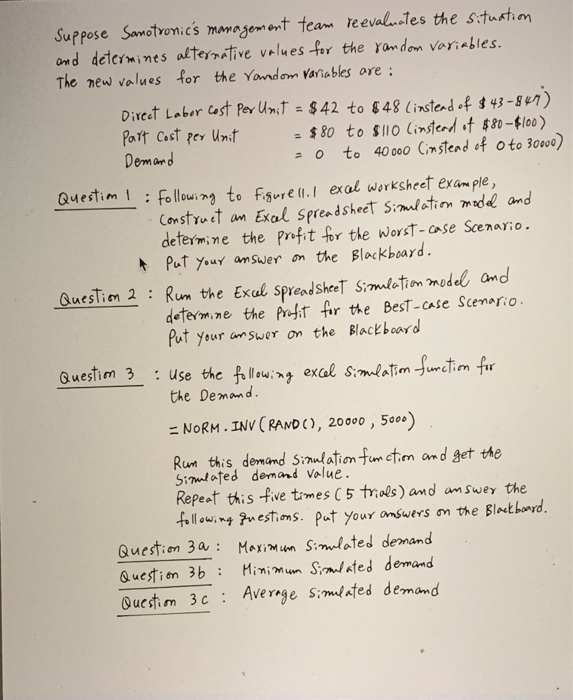 Suppose Sanotronic's management team reevaluates the situation
and determines alternative values for the random variables.
The new values for the random variables are :
Direct Labor Cost Per Unit = $42 to $48 (instead of $43-$47)
Part Cost per Unit = $80 to $110 (instead of $80-$100)
Demand = 0 to 40000 (instead of 0 to 30000)
Question 1 : Following to Figure 11.1 excel worksheet example,
Construct an Excel Spreadsheet Simulation model and
determine the profit for the Worst-case Scenario.
Put your answer on the Blackboard.
Question 2 : Run the Excel spreadsheet Simulation model and
determine the Profit for the Best-case Scenario.
Put your answer on the Blackboard
Question 3 : Use the following excel Simulation function for
the Demand.
= NORM.INV(RAND(), 20000, 5000)
Run this demand Simulation function and get the
Simulated demand value.
Repeat this five times (5 trials) and answer the
following questions. Put your answers on the Blackboard.
Question 3a : Maximum Simulated demand
Question 3b : Minimum Simulated demand
Question 3c : Average simulated demand